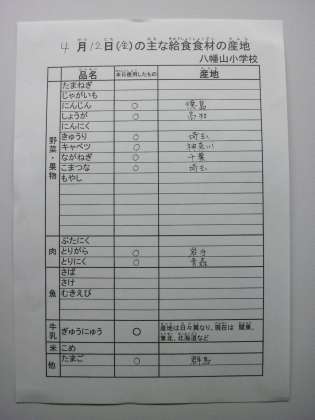 4月12日(金)の主な給食食材の産地
八幡山小学校
品名 本日使用したもの 産地
野菜・果物
たまねぎ
じゃがいも
にんじん ○ 徳島
しょうが ○ 高知
にんにく
きゅうり ○ 埼玉
キャベツ ○ 神奈川
ながねぎ ○ 千葉
こまつな ○ 埼玉
もやし
肉
ぶたにく
とりがら ○ 岩手
とりにく ○ 青森
魚
さば
さけ
むきえび
牛乳 ぎゅうにゅう ○ 産地は日々異なり、現在は 関東、
東北、北海道など
米 こめ
他 たまご ○ 群馬